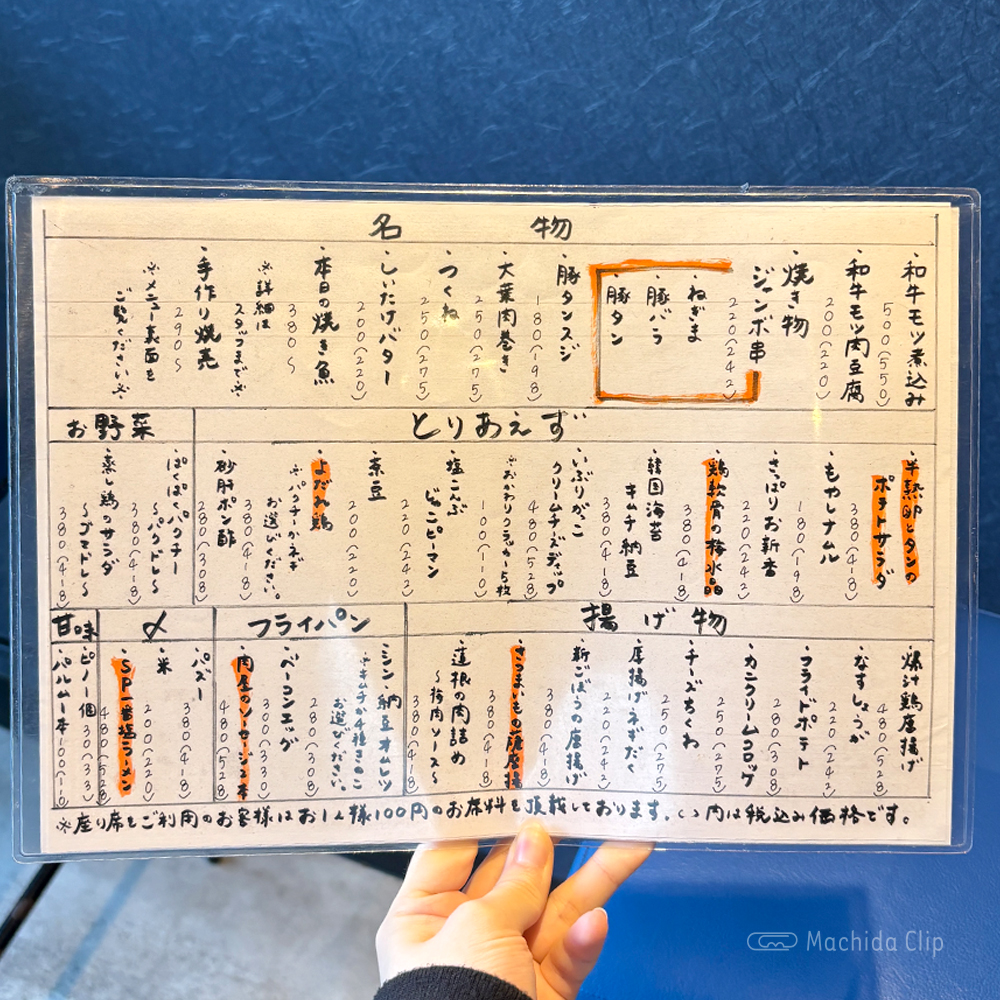 名物
・和牛モツ煮込み
500(550)
・和牛モツ肉豆腐
200(220)
・焼き物
ジャンボ串
220(242)
・ねぎま
・豚バラ
・豚タン
・豚タンスジ
180(198)
・大葉肉巻き
250(275)
・つくね
250(275)
・しいたけバター
200(220)
・本日の焼き魚
380〜
※詳細は
スタッフまで※
・手作り焼売
290〜
※メニュー裏面を
ご覧ください※
とりあえず
・半熟卵とタンの
ポテトサラダ
380(418)
・もやしナムル
180(198)
・さっぱりお新香
220(242)
・鶏軟骨の梅水晶
380(418)
・韓国海苔
キムチ納豆
380(418)
・いぶりがっこ
クリームチーズディップ
480(528)
※おかわりクラッカー5枚
100(110)
・塩こんぶ
どこピーマン
220(242)
・茶豆
200(220)
・よだれ鶏
※パクチーかネギ
お選びください。
380(418)
・砂肝ポン酢
280(308)
お野菜
・ぱくぱくパクチー
〜パクドレ〜
380(418)
・蒸し鶏のサラダ
〜ゴマドレ〜
380(418)
揚げ物
・爆汁鶏唐揚げ
480(528)
・なすしょうが
220(242)
・フライドポテト
280(308)
・カニクリームコロッケ
250(275)
・チーズちくわ
250(275)
・厚揚げネギだく
220(242)
・新ごぼうの唐揚げ
380(418)
・さつまいもの薩摩揚
380(418)
・蓮根の肉詰め
〜梅肉ソース〜
380(418)
フライパン
・シン・納豆オムレツ
※キムチか4種きのこ
お選びください。
280(308)
・ベーコンエッグ
300(330)
・肉屋のソーセージ3本
480(528)
〆
・パズー
380(418)
・米
200(220)
・SP一番塩ラーメン
480(528)
甘味
・ピノ一個 30(33)
・パルム一本 100(110)
※座り席をご利用のお客様はお1人様100円のお席料を頂戴しております。( )内は税込み価格です。
Machida Clip